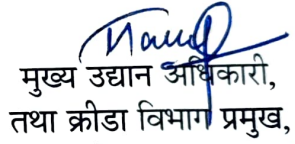 मुख्य उद्यान अधिकारी,
तथा क्रीडा विभाग प्रमुख,